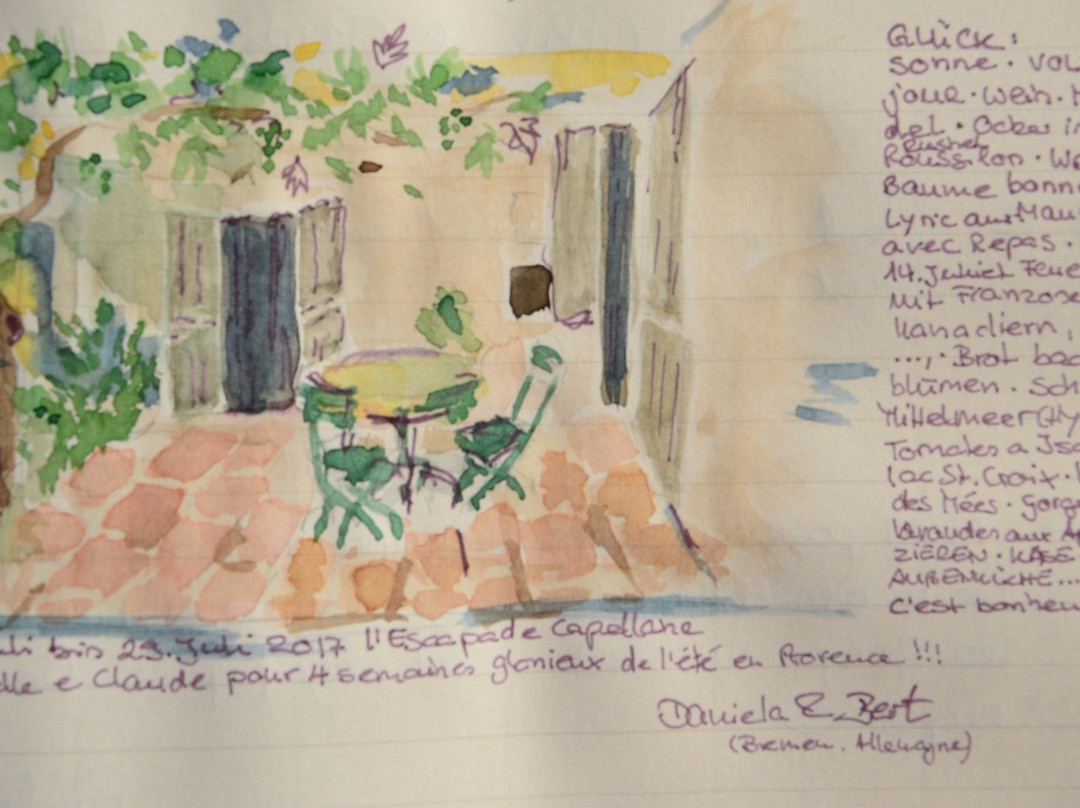 GLÜCK:
Sonne · VOL
joue · Wein ·
del · Ocker in
Rousillon · We
Baume bonne
Lyric aux Mau
avec Repas ·
14. Juliet Feue
mit Franzose
Kanadiern,
..., · Brot bac
blümen · Sch
Mittelmeer (Hy
Tomates a Iso
lac St. Croix ·
des Mées · Gorg
Lavandes aux
ZIEREN · KÄSE
AUßENKÜCHE...
C'est bonheu
uli bis 29. Juli 2017 l'Escapade Capellane
elle e Claude pour 4 semaines glorieux de l'été en Provence !!!
Daniela & Bert
(Bremen, Allemagne)